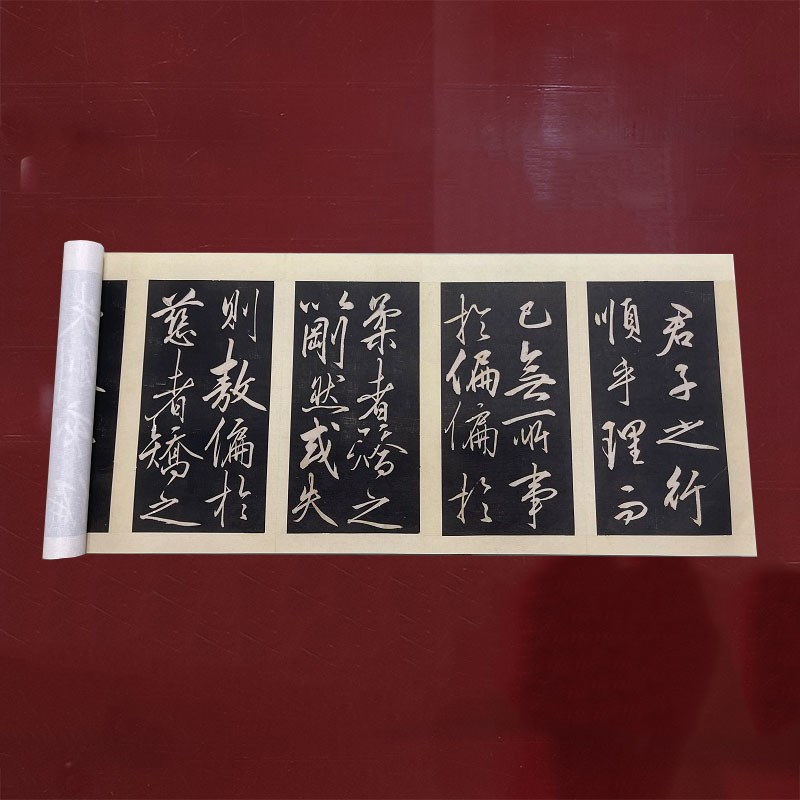 君子之行
順乎理而
已無所事
於偏偏於
柔者矯之
以剛然或失
則敖偏於
慈者矯之